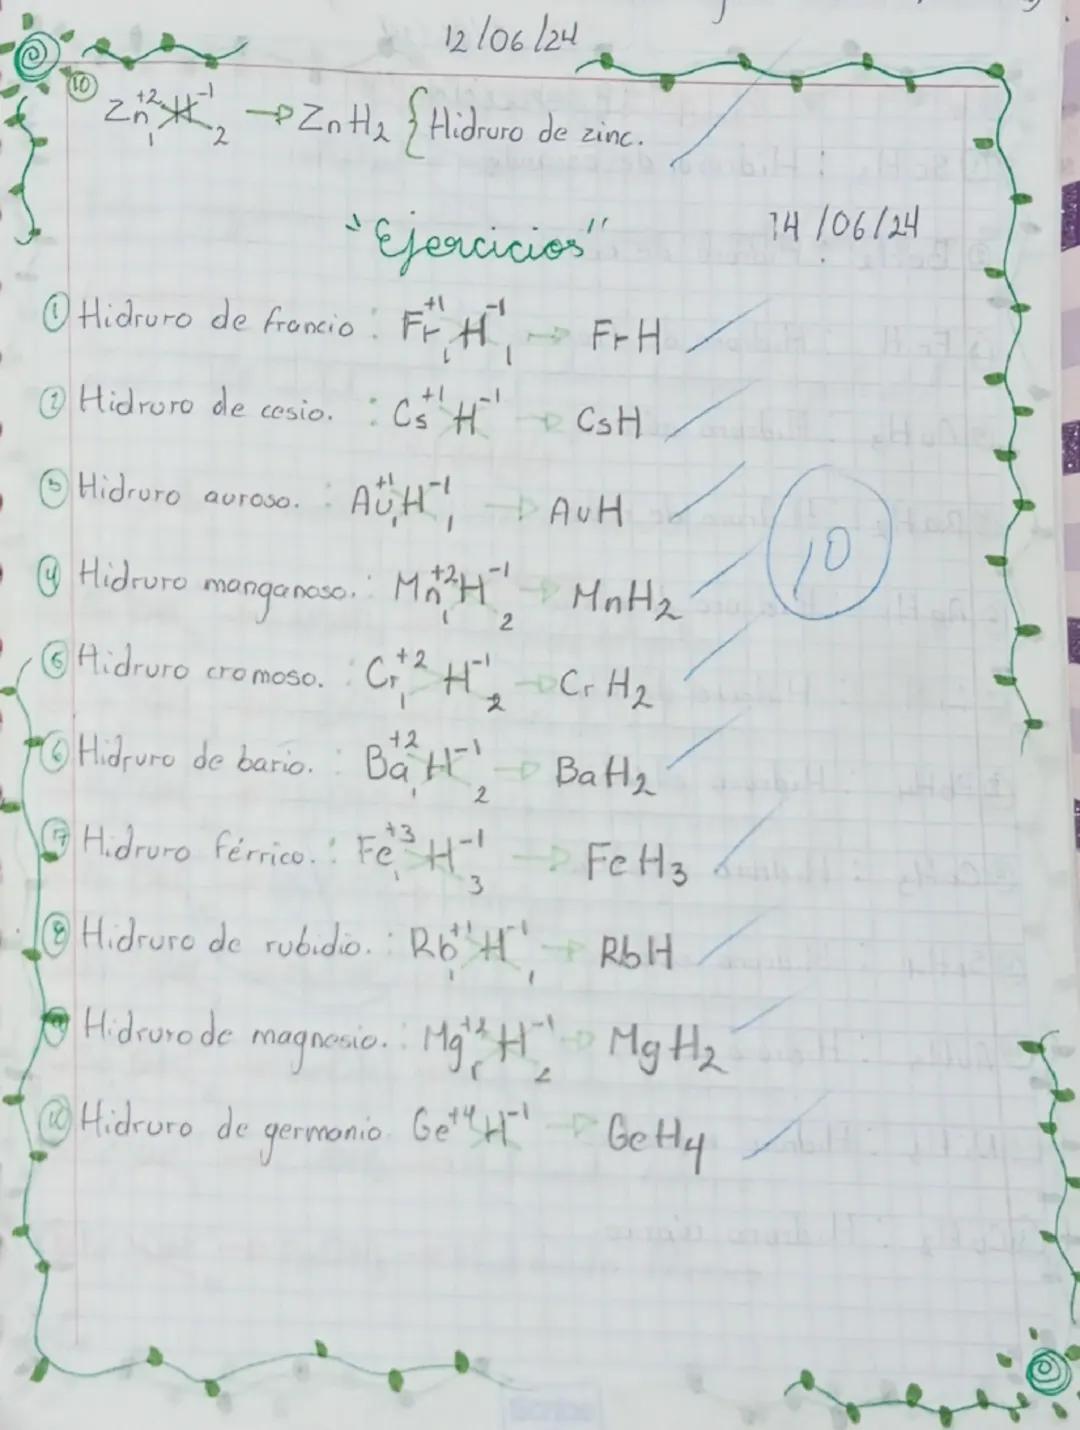 12/06/24
⑩ Zn⁺²₁ H⁻¹₂ → ZnH₂ { Hidruro de zinc.
"Ejercicios" 14/06/24
① Hidruro de francio : Fr⁺¹₁ H⁻¹₁ → FrH
② Hidruro de cesio. : Cs⁺¹ H⁻¹ → CsH
③ Hidruro auroso. : Au⁺¹₁ H⁻¹₁ → AuH
④ Hidruro manganoso. : Mn⁺²₁ H⁻¹₂ → MnH₂
10
⑤ Hidruro cromoso. : Cr⁺²₁ H⁻¹₂ → CrH₂
⑥ Hidruro de bario. : Ba⁺²₁ H⁻¹₂ → BaH₂
⑦ Hidruro férrico. : Fe⁺³₁ H⁻¹₃ → FeH₃
⑧ Hidruro de rubidio. : Rb⁺¹₁ H⁻¹₁ → RbH
⑨ Hidruro de magnesio. : Mg⁺²₁ H⁻¹₂ → MgH₂
⑩ Hidruro de germanio Ge⁺⁴ H⁻¹ → GeH₄